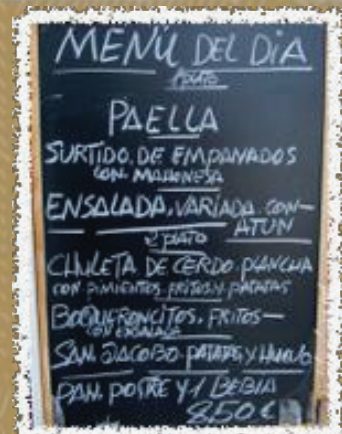 MENÚ DEL DIA
PLATO
PAELLA
SURTIDO DE EMPANADOS
CON MAHONESA
ENSALADA VARIADA CON
ATUN
2 PLATO
CHULETA DE CERDO PLANCHA
CON PIMIENTOS FRITOS Y PATATAS
BOQUERONCITOS FRITOS
CON
SAN JACOBO PATATAS Y HUEVO
PAN POSTRE Y 1 BEBIA
8,50 €